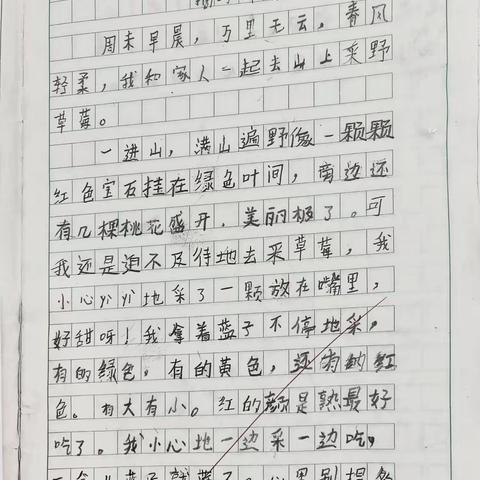 周末早晨，万里无云。春风
轻柔，我和家人一起去山上采野
草莓。
一进山，满山遍野像一颗颗
红色宝石挂在绿色叶间，旁边还
有几棵桃花盛开，美丽极了。可
我还是迫不及待地去采草莓，我
小心yì yì地采了一颗放在嘴里，
好甜呀！我拿着蓝子不停地采，
有的绿色，有的黄色，还有的红
色。有大有小。红的颜是熟最好
吃了。我小心地一边采一边吃，